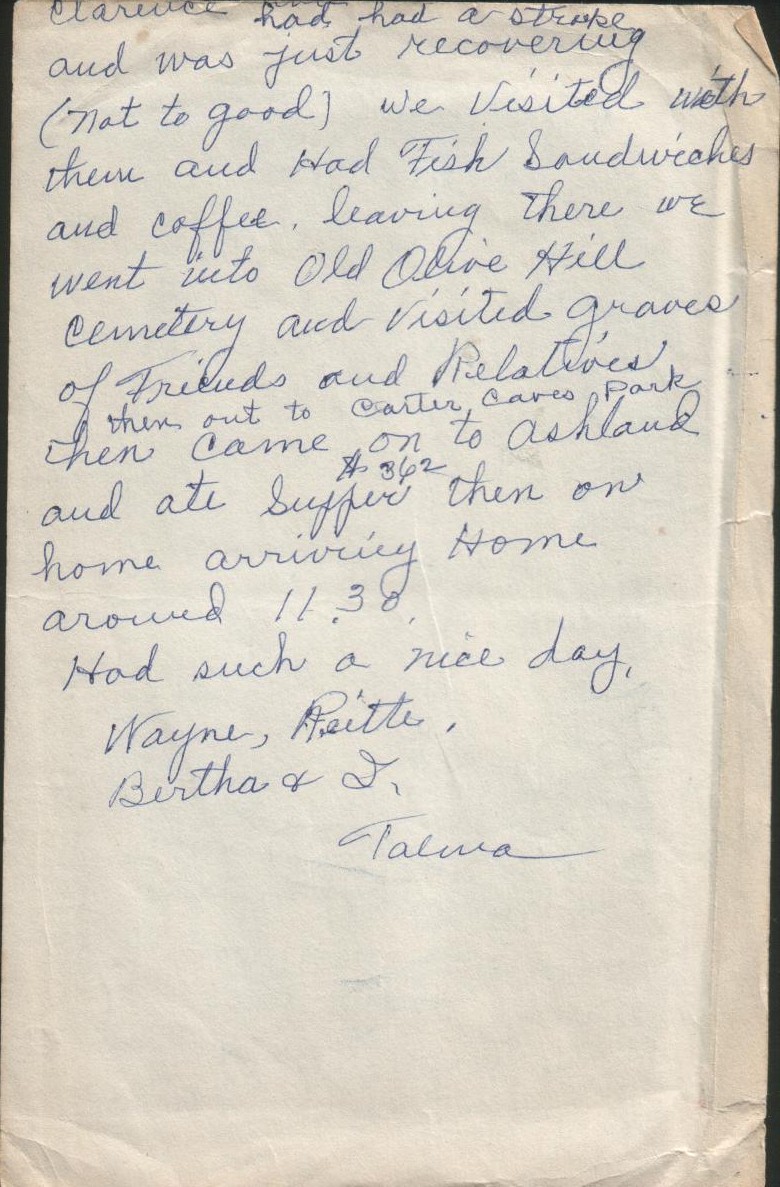 Clarence had had a stroke
and was just recovering
(not to good) we Visited with
them and Had Fish Sandwiches
and coffee. leaving there we
went into Old Olive Hill
Cemetery and Visited graves
of Friends and Relatives
then out to Carter Caves Park
then came on to Ashland
# 362
and ate Supper then on
home arriving Home
around 11.30.
Had such a nice day,
Wayne,
Bertha & I.